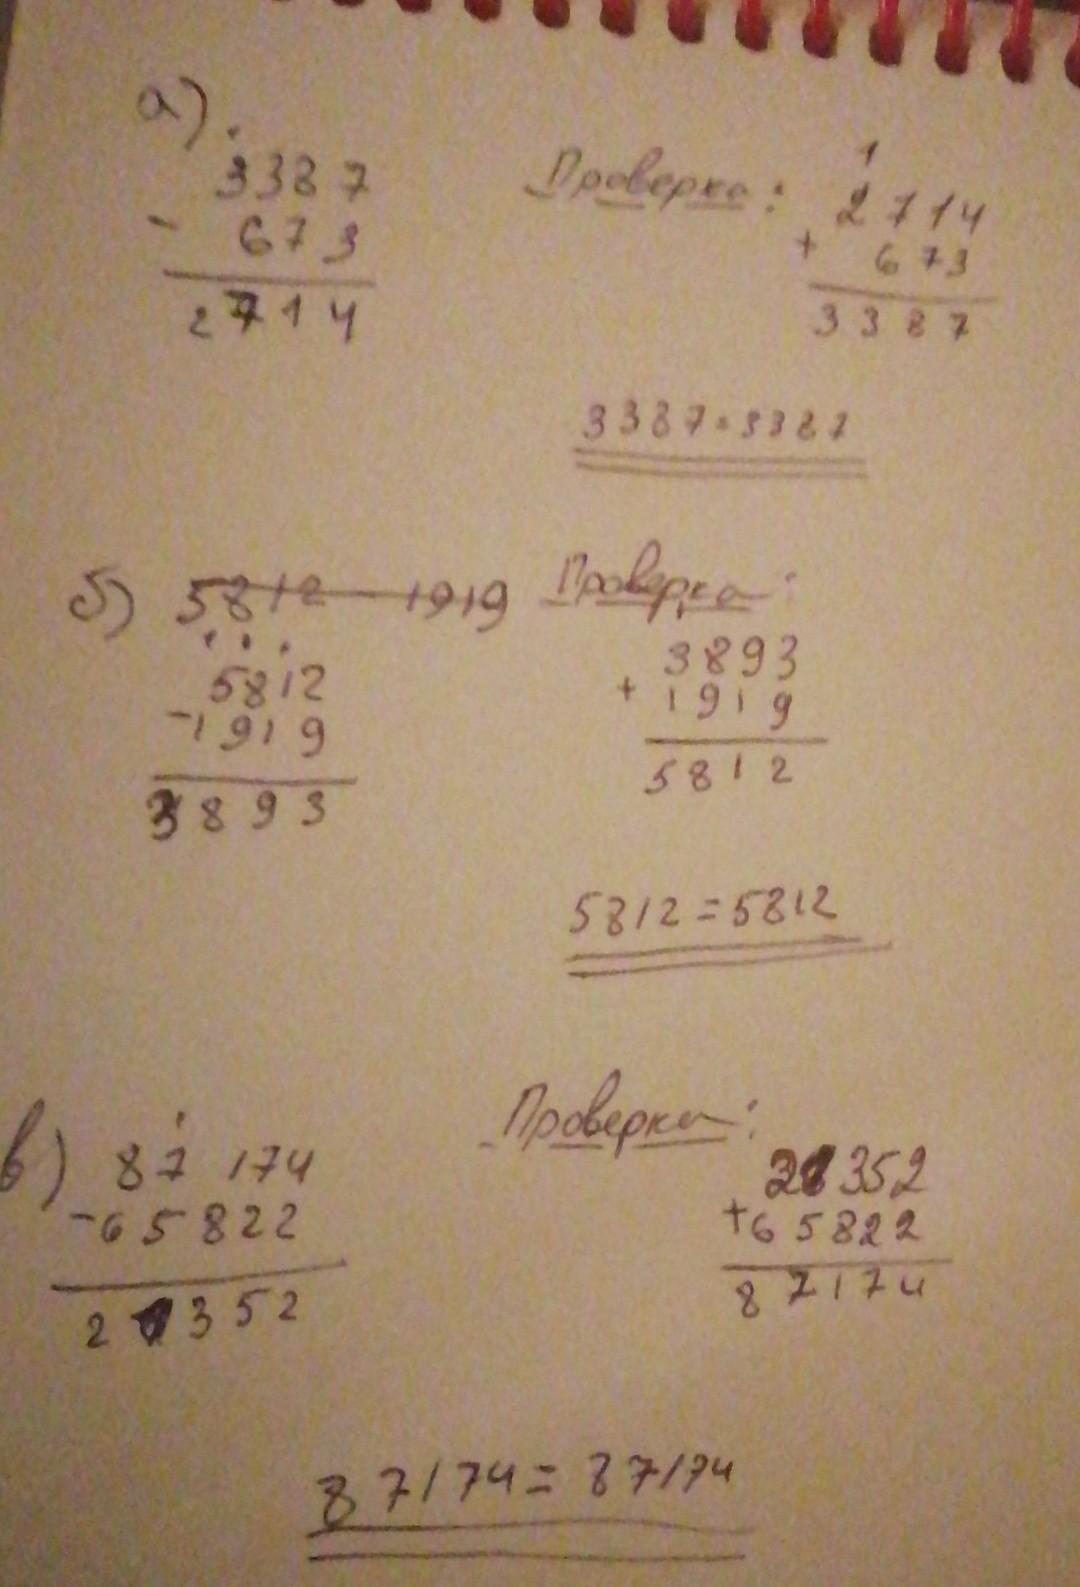 а)
3387
- 673
2714
Проверка:
1
2714
+ 673
3387
3387=3387
б) 5812 - 1919
5812
-1919
3893
Проверка:
3893
+ 1919
5812
5812=5812
в) 87 174
-65822
21352
Проверка:
21352
+65822
87174
87174=87174